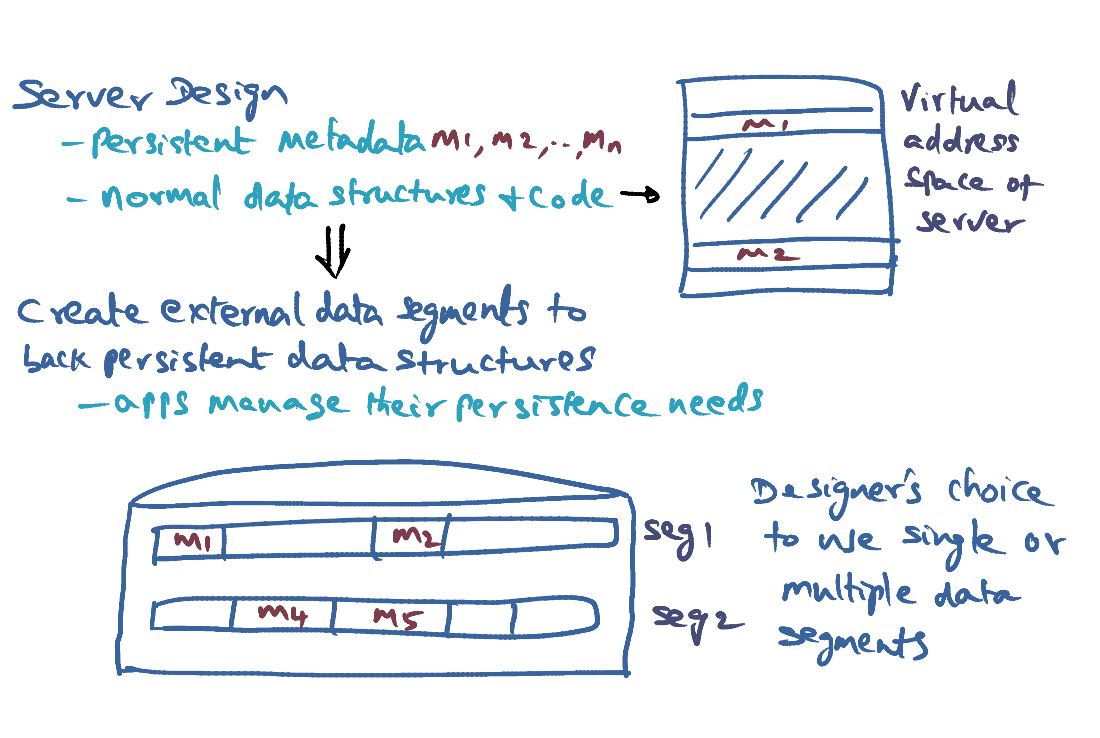 Server Design
- Persistent metadata M1, M2,..,Mn
- normal data structures + code
m1
m2
Virtual
address
space of
server
Create external data segments to
back persistent data structures
- apps manage their persistence needs
m1
m2
seg1
m4
m5
seg2
Designer's choice
to use single or
multiple data
segments